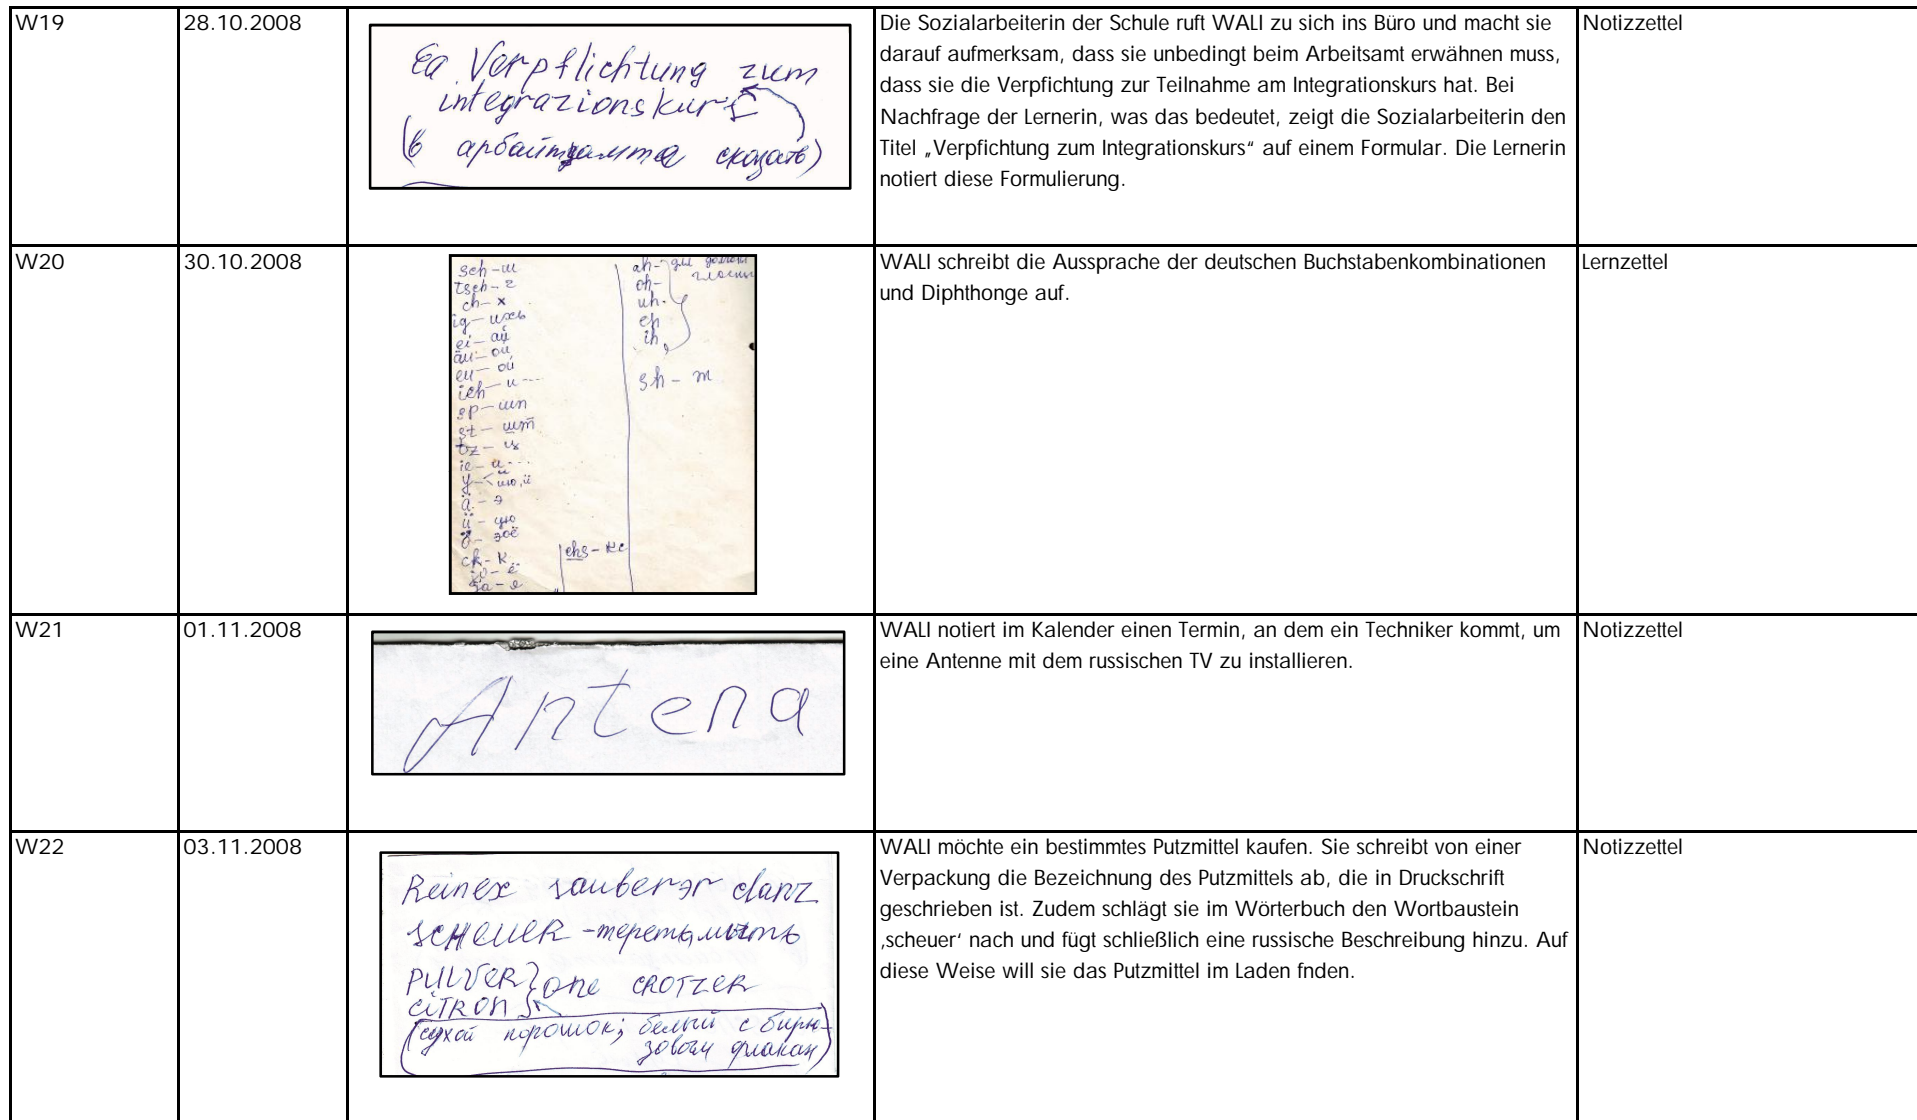 W19
28.10.2008
Ea Verpflichtung zum
integrazionskurs
(в арбайтдамта сказать)
Die Sozialarbeiterin der Schule ruft WALI zu sich ins Büro und macht sie
darauf aufmerksam, dass sie unbedingt beim Arbeitsamt erwähnen muss,
dass sie die Verpfichtung zur Teilnahme am Integrationskurs hat. Bei
Nachfrage der Lernerin, was das bedeutet, zeigt die Sozialarbeiterin den
Titel „Verpfichtung zum Integrationskurs“ auf einem Formular. Die Lernerin
notiert diese Formulierung.
Notizzettel
W20
30.10.2008
sch - ш
tsch - г
ch - х
ig - ихь
ei - ай
äu - ой
eu - ой
ieh - и...
sp - шп
st - шт
tz - ц
ie - и...
y
ä - э
ü
ö
ck - к
jo - ё
ja - я
chs - кс
ah -
oh -
uh -
eh
ih
sh - т
WALI schreibt die Aussprache der deutschen Buchstabenkombinationen
und Diphthonge auf.
Lernzettel
W21
01.11.2008
Antena
WALI notiert im Kalender einen Termin, an dem ein Techniker kommt, um
eine Antenne mit dem russischen TV zu installieren.
Notizzettel
W22
03.11.2008
Reinex sauberэr clanz
SCHEUER - тереть, мыть
PULVER } one CROTZER
CITRON
(сухой порошок; белый с бирю-
зовым флакан)
WALI möchte ein bestimmtes Putzmittel kaufen. Sie schreibt von einer
Verpackung die Bezeichnung des Putzmittels ab, die in Druckschrift
geschrieben ist. Zudem schlägt sie im Wörterbuch den Wortbaustein
‚scheuer‘ nach und fügt schließlich eine russische Beschreibung hinzu. Auf
diese Weise will sie das Putzmittel im Laden fnden.
Notizzettel